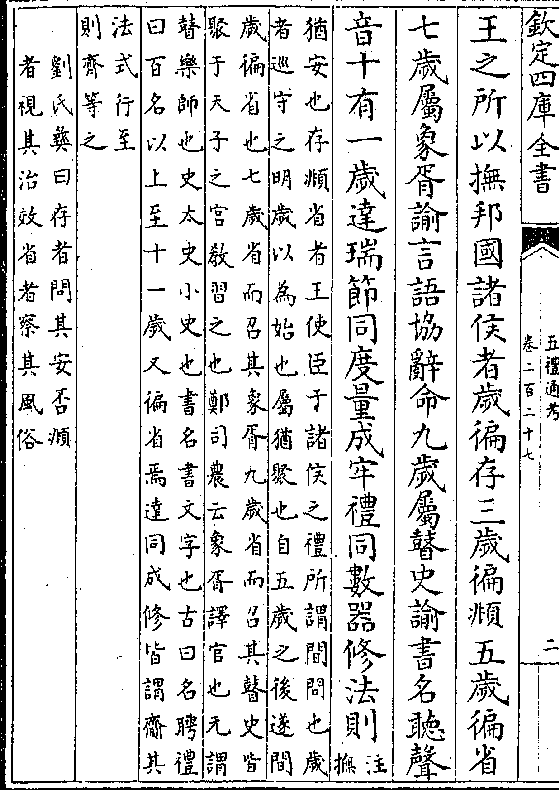 欽定四庫全書
五禮通考
卷二百二十七
二
王之所以撫邦國諸侯者歲徧存三歲徧頫五歲徧省
七歲屬象胥諭言語協辭命九歲屬瞽史諭書名聽聲
音十有一歲達瑞節同度量成牢禮同數器修法則
注
撫
猶安也存頫省者王使臣于諸侯之禮所謂間問也歲
者巡守之明歲以為始也屬猶聚也自五歲之後遂間
歲徧省也七歲省而召其象胥九歲省而召其瞽史皆
聚于天子之宮教習之也鄭司農云象胥譯官也元謂
瞽樂師也史太史小史也書名書文字也古曰名聘禮
曰百名以上至十一歲又徧省焉達同成修皆謂齎其
法式行至
則齊等之
劉氏彝曰存者問其安否頫
者視其治效省者察其風俗